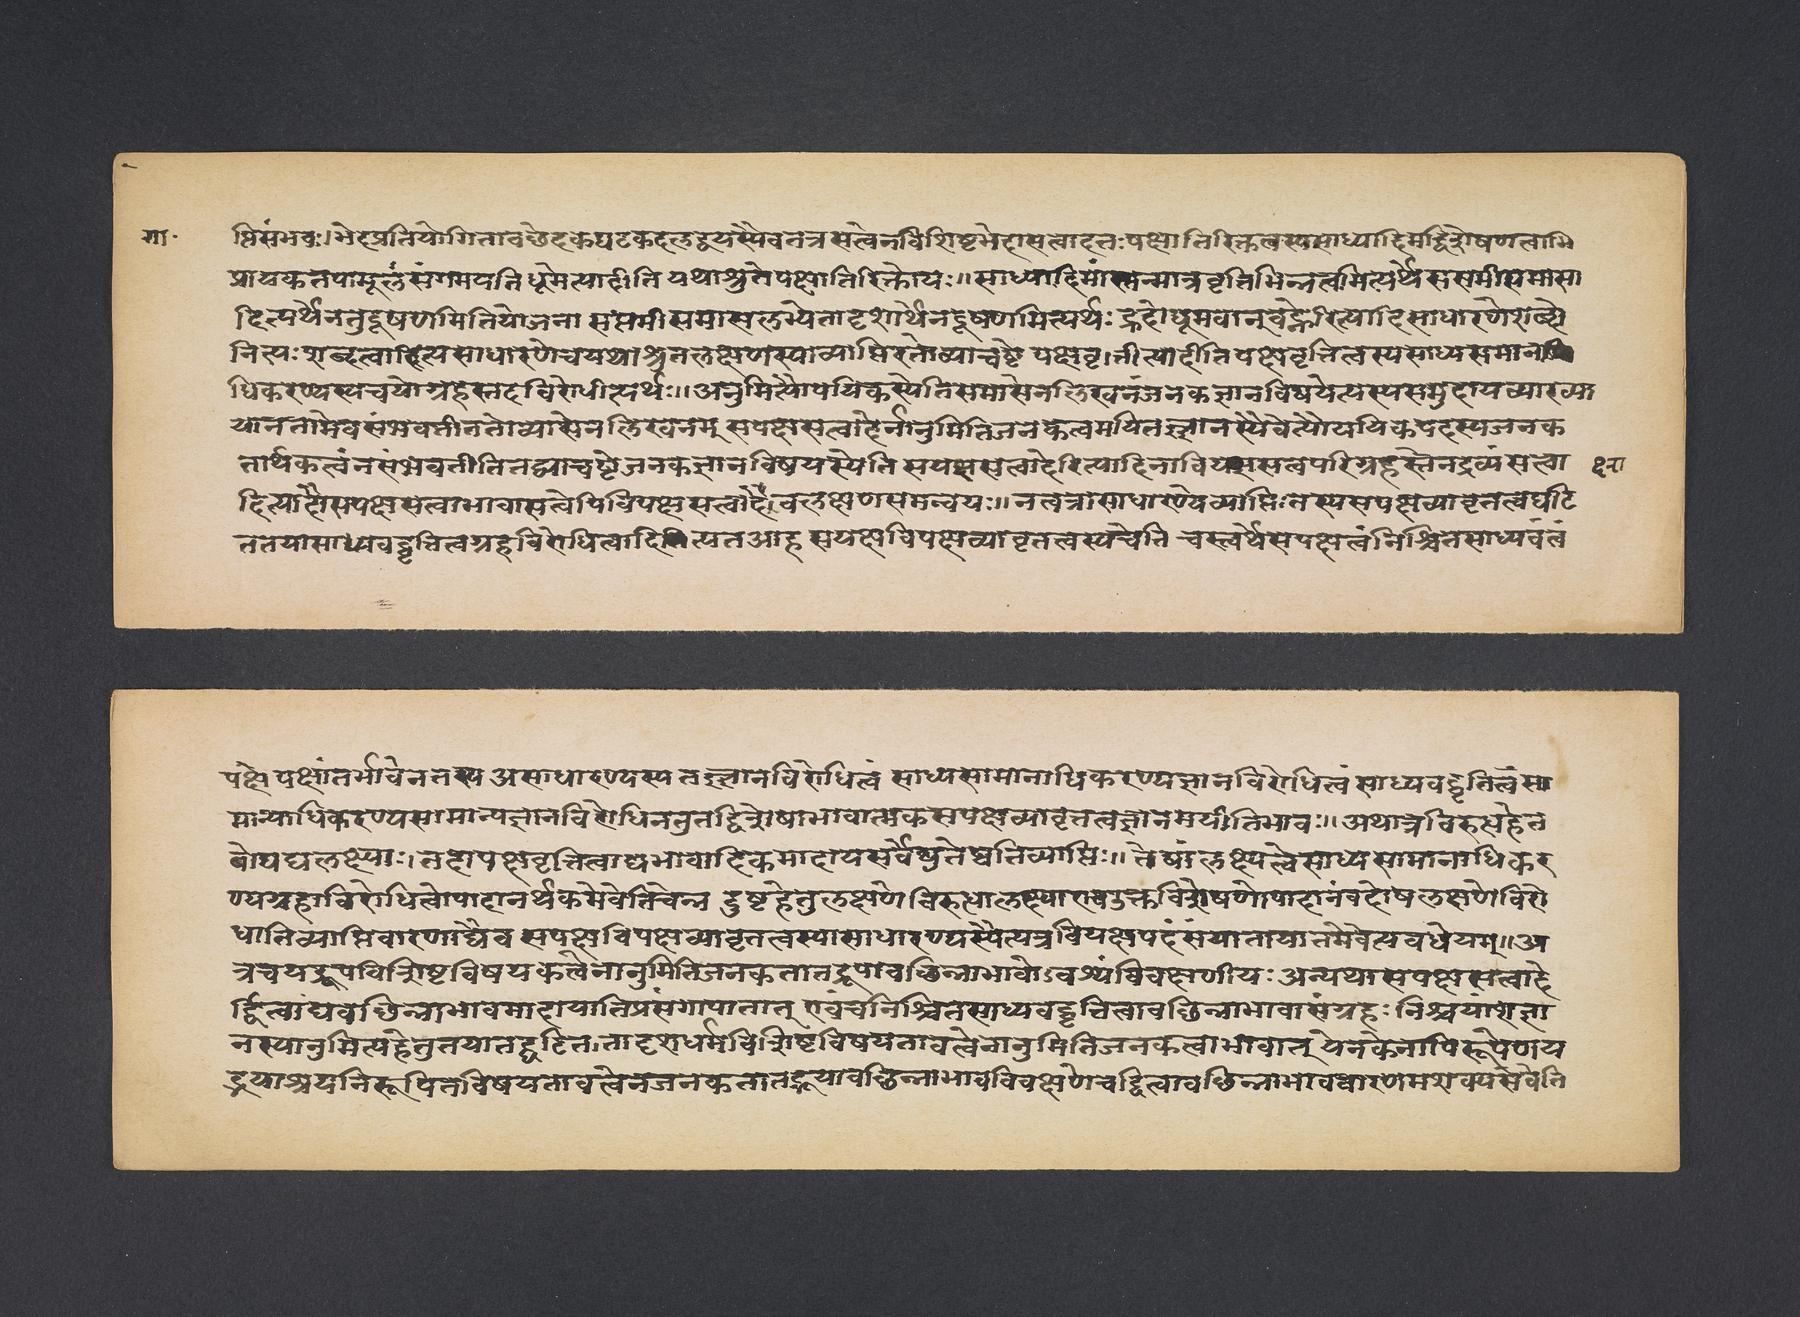 गा॰
प्तिसंभवः। भेदप्रतियोगितावछेदकेघटकदलद्वयस्यैवतत्रसत्वेनविशिष्टभेदासत्वादतःपक्षातिरिक्तत्वस्यसाध्यादिमद्विशेषणत्वाभि
प्रायकतयामूलंसंगमयतिधूमेत्यादीति यथाश्रुतेपक्षातिरिक्तोयः॥साध्यादिमांस्तन्मात्रवृत्तिभिन्नत्वमित्यर्थेससमीसमासा
दित्यर्थेननुदूषणमितियोजना सप्तमीसमासलभ्येतादृशार्थेनदूषणमित्यर्थः ह्रदोधूमवान्वह्नेरित्यादिसाधारणेशब्दो
नित्यःशब्दत्वादित्यसाधारणेचयथाश्रुतलक्षणस्याव्याप्तिरतोव्याचष्टे पक्षवृत्तीत्यादीतिपक्षवृत्तित्वस्यसाध्यसमाना
धिकरण्यस्यचयोग्रहस्तदविरोधीत्यर्थः॥अनुमित्यौपयिकस्येतिसमासेनलिखनंजनकज्ञानविषयेत्यस्यसमुदायव्याख्या
यानतामेवसंभवतीत्यतोव्यासेनलिखनम् सपक्षसत्वादेर्नानुमितिजनकत्वमपितज्ज्ञानस्यैवेत्यौपयिकपदस्यजनक
तार्थकत्वंनसंभवतीतितद्व्याचष्टेजनकज्ञानविषयस्येति सपक्षसत्वादेरित्यादिनाविपक्षासत्वपरिग्रहस्तेनद्रव्यंसत्वा
१२ा
दित्यादौसपक्षसत्वाभावासत्वेपिविपक्षसत्वादेवलक्षणसमन्वयः॥ नत्वत्रासाधारण्येव्याप्तिःतस्यसपक्षव्यावृत्तत्वघटि
ततयासाध्यवद्वृत्तित्वग्रहविरोधित्वादित्यतआह सपक्षविपक्षव्यावृतत्वस्यचेति चस्त्वर्थेसपक्षत्वंनिश्चितसाध्यवत्वं
पक्षे पक्षांतर्भावेनतस्य असाधारण्यस्य तज्ज्ञानविरोधित्वं साध्यसामानाधिकरण्यज्ञानविरोधित्वं साध्यवद्वृत्तित्वंसा
मान्याधिकरण्यसामान्यज्ञानविरोधिनतुतद्विशेषाभावात्मकसपक्षव्यावृत्तत्वज्ञानमपीतिभावः॥अथात्रविरुद्धहेत
वोयद्यलक्ष्याः।तदापक्षवृत्तित्वाद्यभावादिकमादायसर्वेष्वुतेष्वतिव्याप्तिः॥ तेषांलक्ष्यत्वेसाध्यसामानाधिकर
ण्यग्रहाविरोधित्वोपादानर्थकमेवेतिचेन्न दुष्टहेतुलक्षणेविरुधालक्ष्याएवउक्तविशेषणोपादानंचदोषलक्षणेविरो
धातिव्याप्तिवारणाद्यैव सपक्षविपक्षव्यावृतत्वस्यासाधारण्यस्यैत्यत्रविपक्षपदंसंपातायातमेवेत्यवधेयम्॥अ
त्रचयद्रूपविशिष्टविषयकत्वेनानुमितिजनकतातद्रूपावछिन्नाभावोऽवश्यंविवक्षणीयः अन्यथासपक्षसत्वादे
र्द्वित्वाद्यवछिन्नाभावमादायातिप्रसंगापातात् एवंचनिश्चितसाध्यवद्वृत्तित्वावछिन्नाभावासंग्रहः निश्चयांशज्ञा
नस्यानुमित्यहेतुतयातद्घटित।तादृशधर्मविशिष्टविषयतावत्वेनानुमितिजनकत्वाभावात् येनकेनापिरूपेणय
द्रूपाश्रयनिरूपितविषयतावत्वेनजनकतातद्रूपावछिन्नाभावविवक्षणेचद्वित्वावछिन्नाभाववारणमशक्यमेवेति